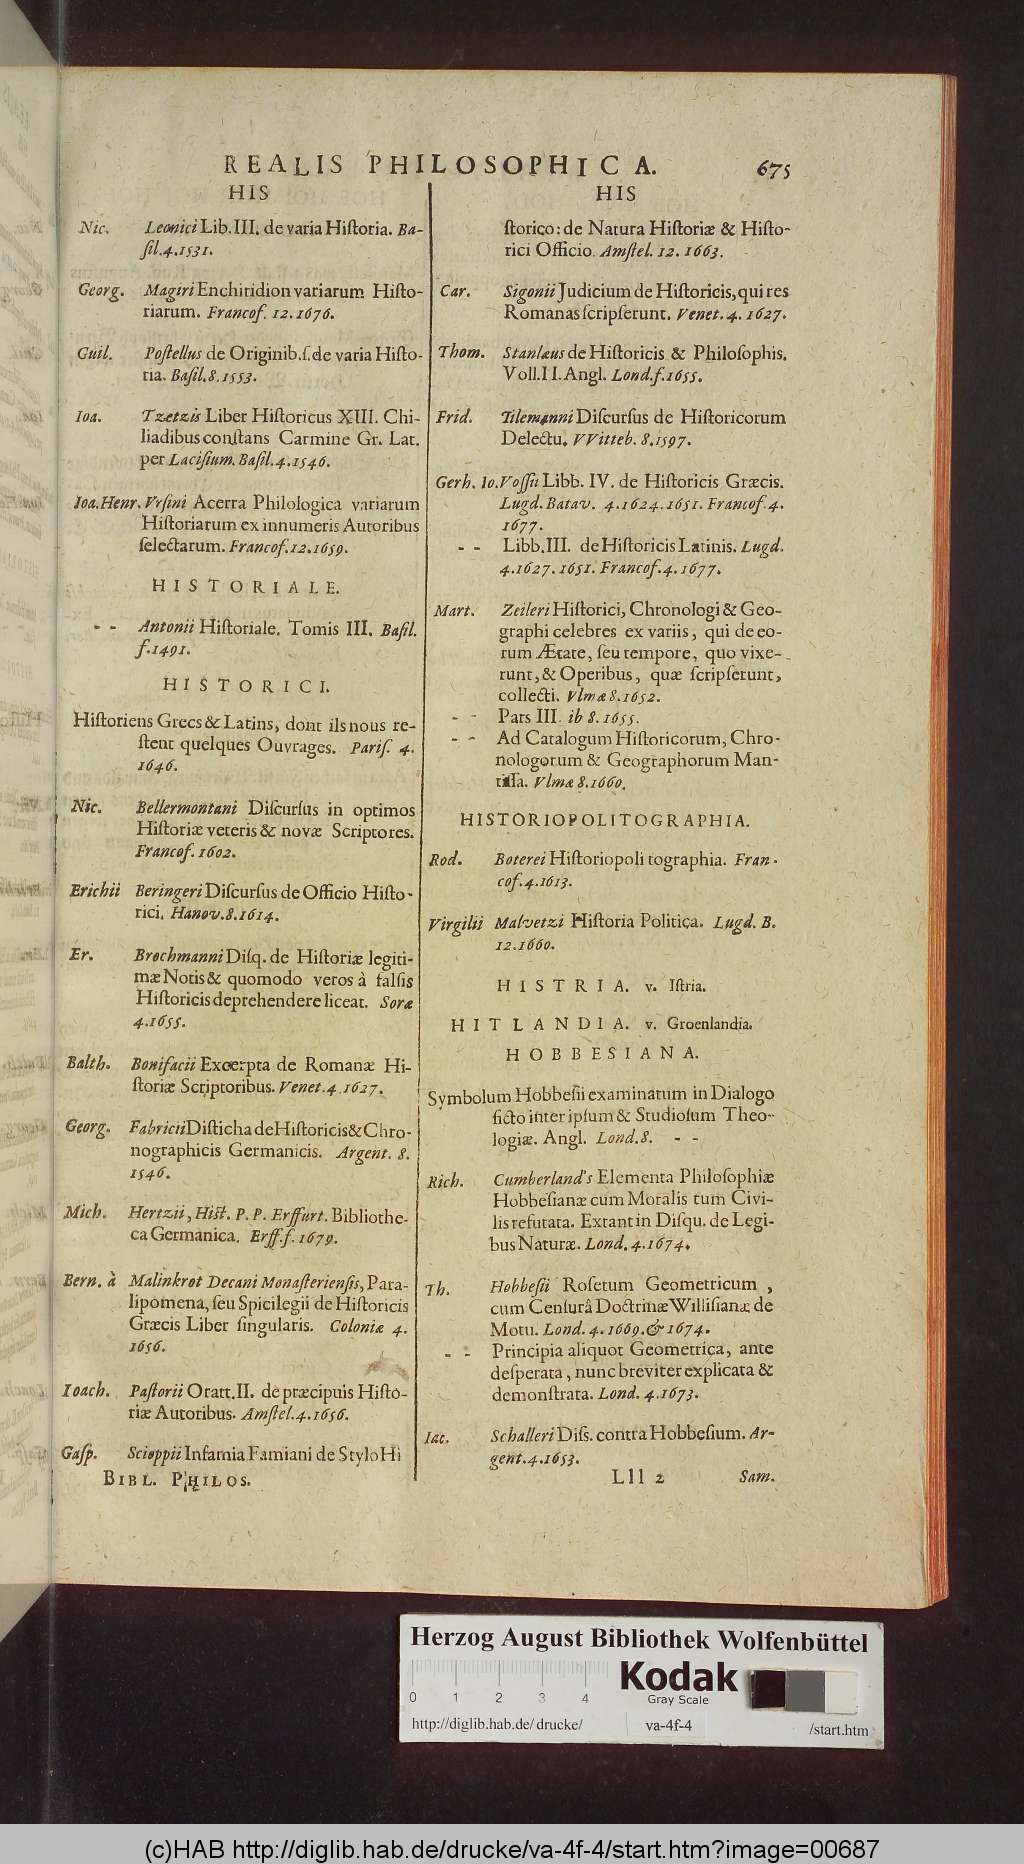 REALIS PHILOSOPHICA. 675
HIS
Nic. Leonici Lib. III. de varia Hiſtoria. Ba-
ſil. 4. 1531.
Georg. Magiri Enchiridion variarum Hiſto-
riarum. Francof. 12. 1676.
Guil. Poſtellus de Originib. ſ. de varia Hiſto-
ria. Baſil. 8. 1553.
Ioa. Tzetzis Liber Hiſtoricus XIII. Chi-
liadibus conſtans Carmine Gr. Lat.
per Laciſium. Baſil. 4. 1546.
Ioa. Henr. Vrſini Acerra Philologica variarum
Hiſtoriarum ex innumeris Autoribus
ſelectarum. Francof. 12. 1659.
HISTORIALE.
- - Antonii Hiſtoriale. Tomis III. Baſil.
f. 1491.
HISTORICI.
Hiſtoriens Grecs & Latins, dont ils nous re-
ſtent quelques Ouvrages. Pariſ. 4.
1646.
Nic. Bellermontani Diſcurſus in optimos
Hiſtoriæ veteris & novæ Scriptores.
Francof. 1602.
Erichii Beringeri Diſcurſus de Officio Hiſto-
rici. Hanov. 8. 1614.
Er. Brochmanni Diſq. de Hiſtoriæ legiti-
mæ Notis & quomodo veros à falſis
Hiſtoricis deprehendere liceat. Soræ
4. 1655.
Balth. Bonifacii Excerpta de Romanæ Hi-
ſtoriæ Scriptoribus. Venet. 4. 1627.
Georg. Fabricii Diſticha de Hiſtoricis & Chro-
nographicis Germanicis. Argent. 8.
1546.
Mich. Hertzii, Hiſt. P. P. Erffurt. Bibliothe-
ca Germanica. Erff. f. 1679.
Bern. à Malinkrot Decani Monaſterienſis, Para-
lipomena, ſeu Spicilegii de Hiſtoricis
Græcis Liber ſingularis. Coloniæ 4.
1656.
Ioach. Paſtorii Oratt. II. de præcipuis Hiſto-
riæ Autoribus. Amſtel. 4. 1656.
Gaſp. Scioppii Infamia Famiani de Stylo Hi
BIBL. PHILOS.
HIS
ſtorico: de Natura Hiſtoriæ & Hiſto-
rici Officio. Amſtel. 12. 1663.
Car. Sigonii Judicium de Hiſtoricis, qui res
Romanas ſcripſerunt. Venet. 4. 1627.
Thom. Stanlæus de Hiſtoricis & Philoſophis.
Voll. II. Angl. Lond. f. 1655.
Frid. Tilemanni Diſcurſus de Hiſtoricorum
Delectu. VVitteb. 8. 1597.
Gerh. Io. Voſſii Libb. IV. de Hiſtoricis Græcis.
Lugd. Batav. 4. 1624. 1651. Francof. 4.
1677.
- - Libb. III. de Hiſtoricis Latinis. Lugd.
4. 1627. 1651. Francof. 4. 1677.
Mart. Zeileri Hiſtorici, Chronologi & Geo-
graphi celebres ex variis, qui de eo-
rum Ætate, ſeu tempore, quo vixe-
runt, & Operibus, quæ ſcripſerunt,
collecti. Vlmæ 8. 1652.
- - Pars III. ib 8. 1655.
- - Ad Catalogum Hiſtoricorum, Chro-
nologorum & Geographorum Man-
tiſſa. Vlmæ 8. 1660.
HISTORIOPOLITOGRAPHIA.
Rod. Boterei Hiſtoriopoli tographia. Fran-
cof. 4. 1613.
Virgilii Malvetzi Hiſtoria Politica. Lugd. B.
12. 1660.
HISTRIA. v. Iſtria.
HITLANDIA. v. Groenlandia.
HOBBESIANA.
Symbolum Hobbeſii examinatum in Dialogo
ficto inter ipſum & Studioſum Theo-
logiæ. Angl. Lond. 8. - -
Rich. Cumberland's Elementa Philoſophiæ
Hobbeſianæ cum Moralis tum Civi-
lis refutata. Extant in Diſqu. de Legi-
bus Naturæ. Lond. 4. 1674.
Th. Hobbeſii Roſetum Geometricum,
cum Cenſurâ Doctrinæ Williſianæ de
Motu. Lond. 4. 1669. & 1674.
- - Principia aliquot Geometrica, ante
deſperata, nunc breviter explicata &
demonſtrata. Lond. 4. 1673.
Iac. Schalleri Diſſ. contra Hobbeſium. Ar-
gent. 4. 1653.
Lll 2 Sam.
Herzog August Bibliothek Wolfenbüttel
0 1 2 3 4
Kodak
Gray Scale
http://diglib.hab.de/drucke/ va-4f-4 /start.htm
(c)HAB http://diglib.hab.de/drucke/va-4f-4/start.htm?image=00687